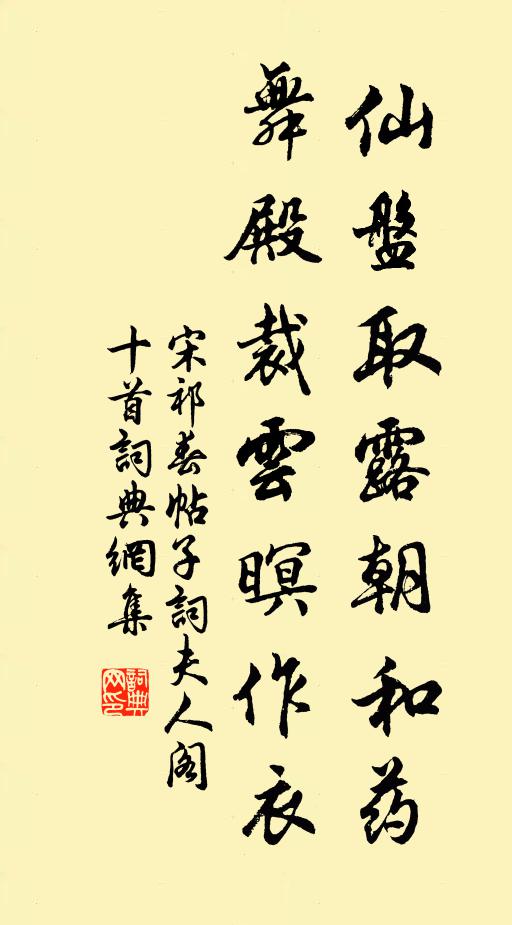 仙盤取露朝和药
舞殿裁雲暝作衣
宋祁春帖子詞夫人阁
十首詞典網集
詞典网印